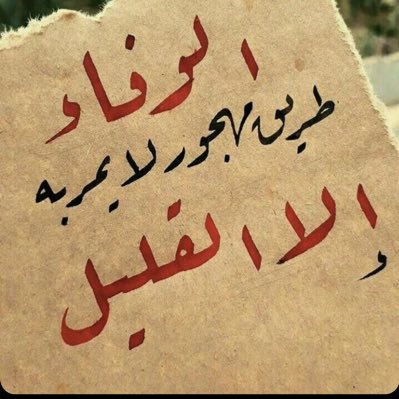 الوفاء
طريق مهجور لا يمر به
الا القليل